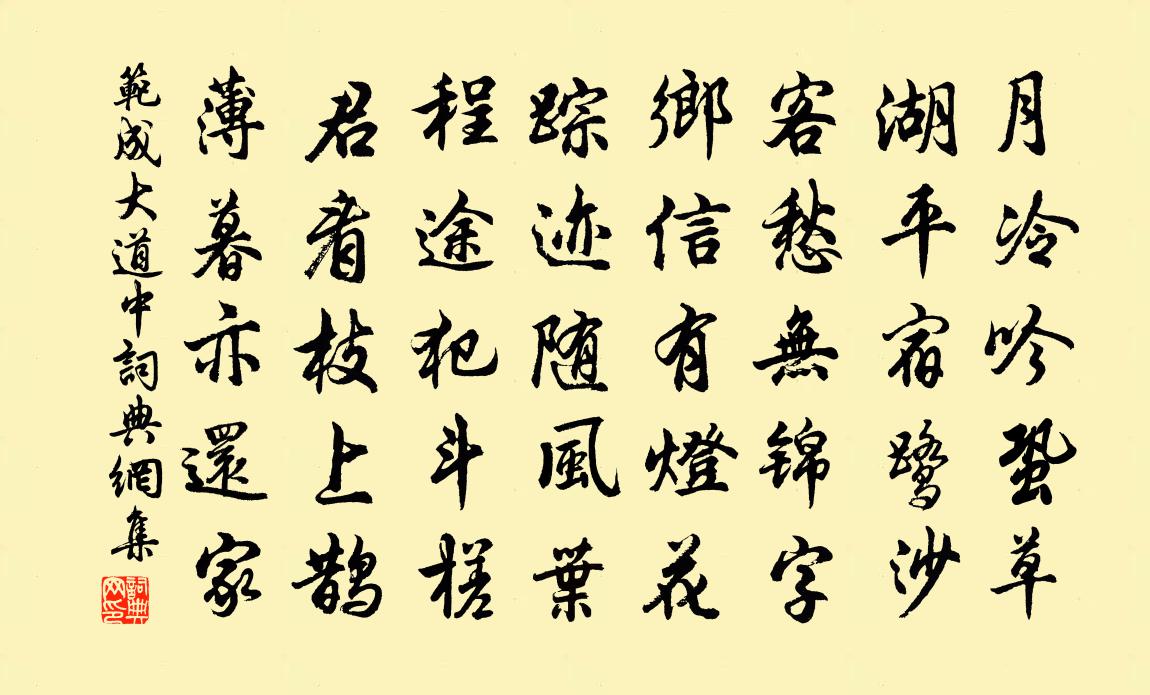 月冷吟蛩草
湖平宿鷺沙
客愁無錦字
鄉信有燈花
踪迹随風葉
程途犯斗槎
君看枝上鵲
薄暮亦還家
範成大道中詞典網集
詞典网印